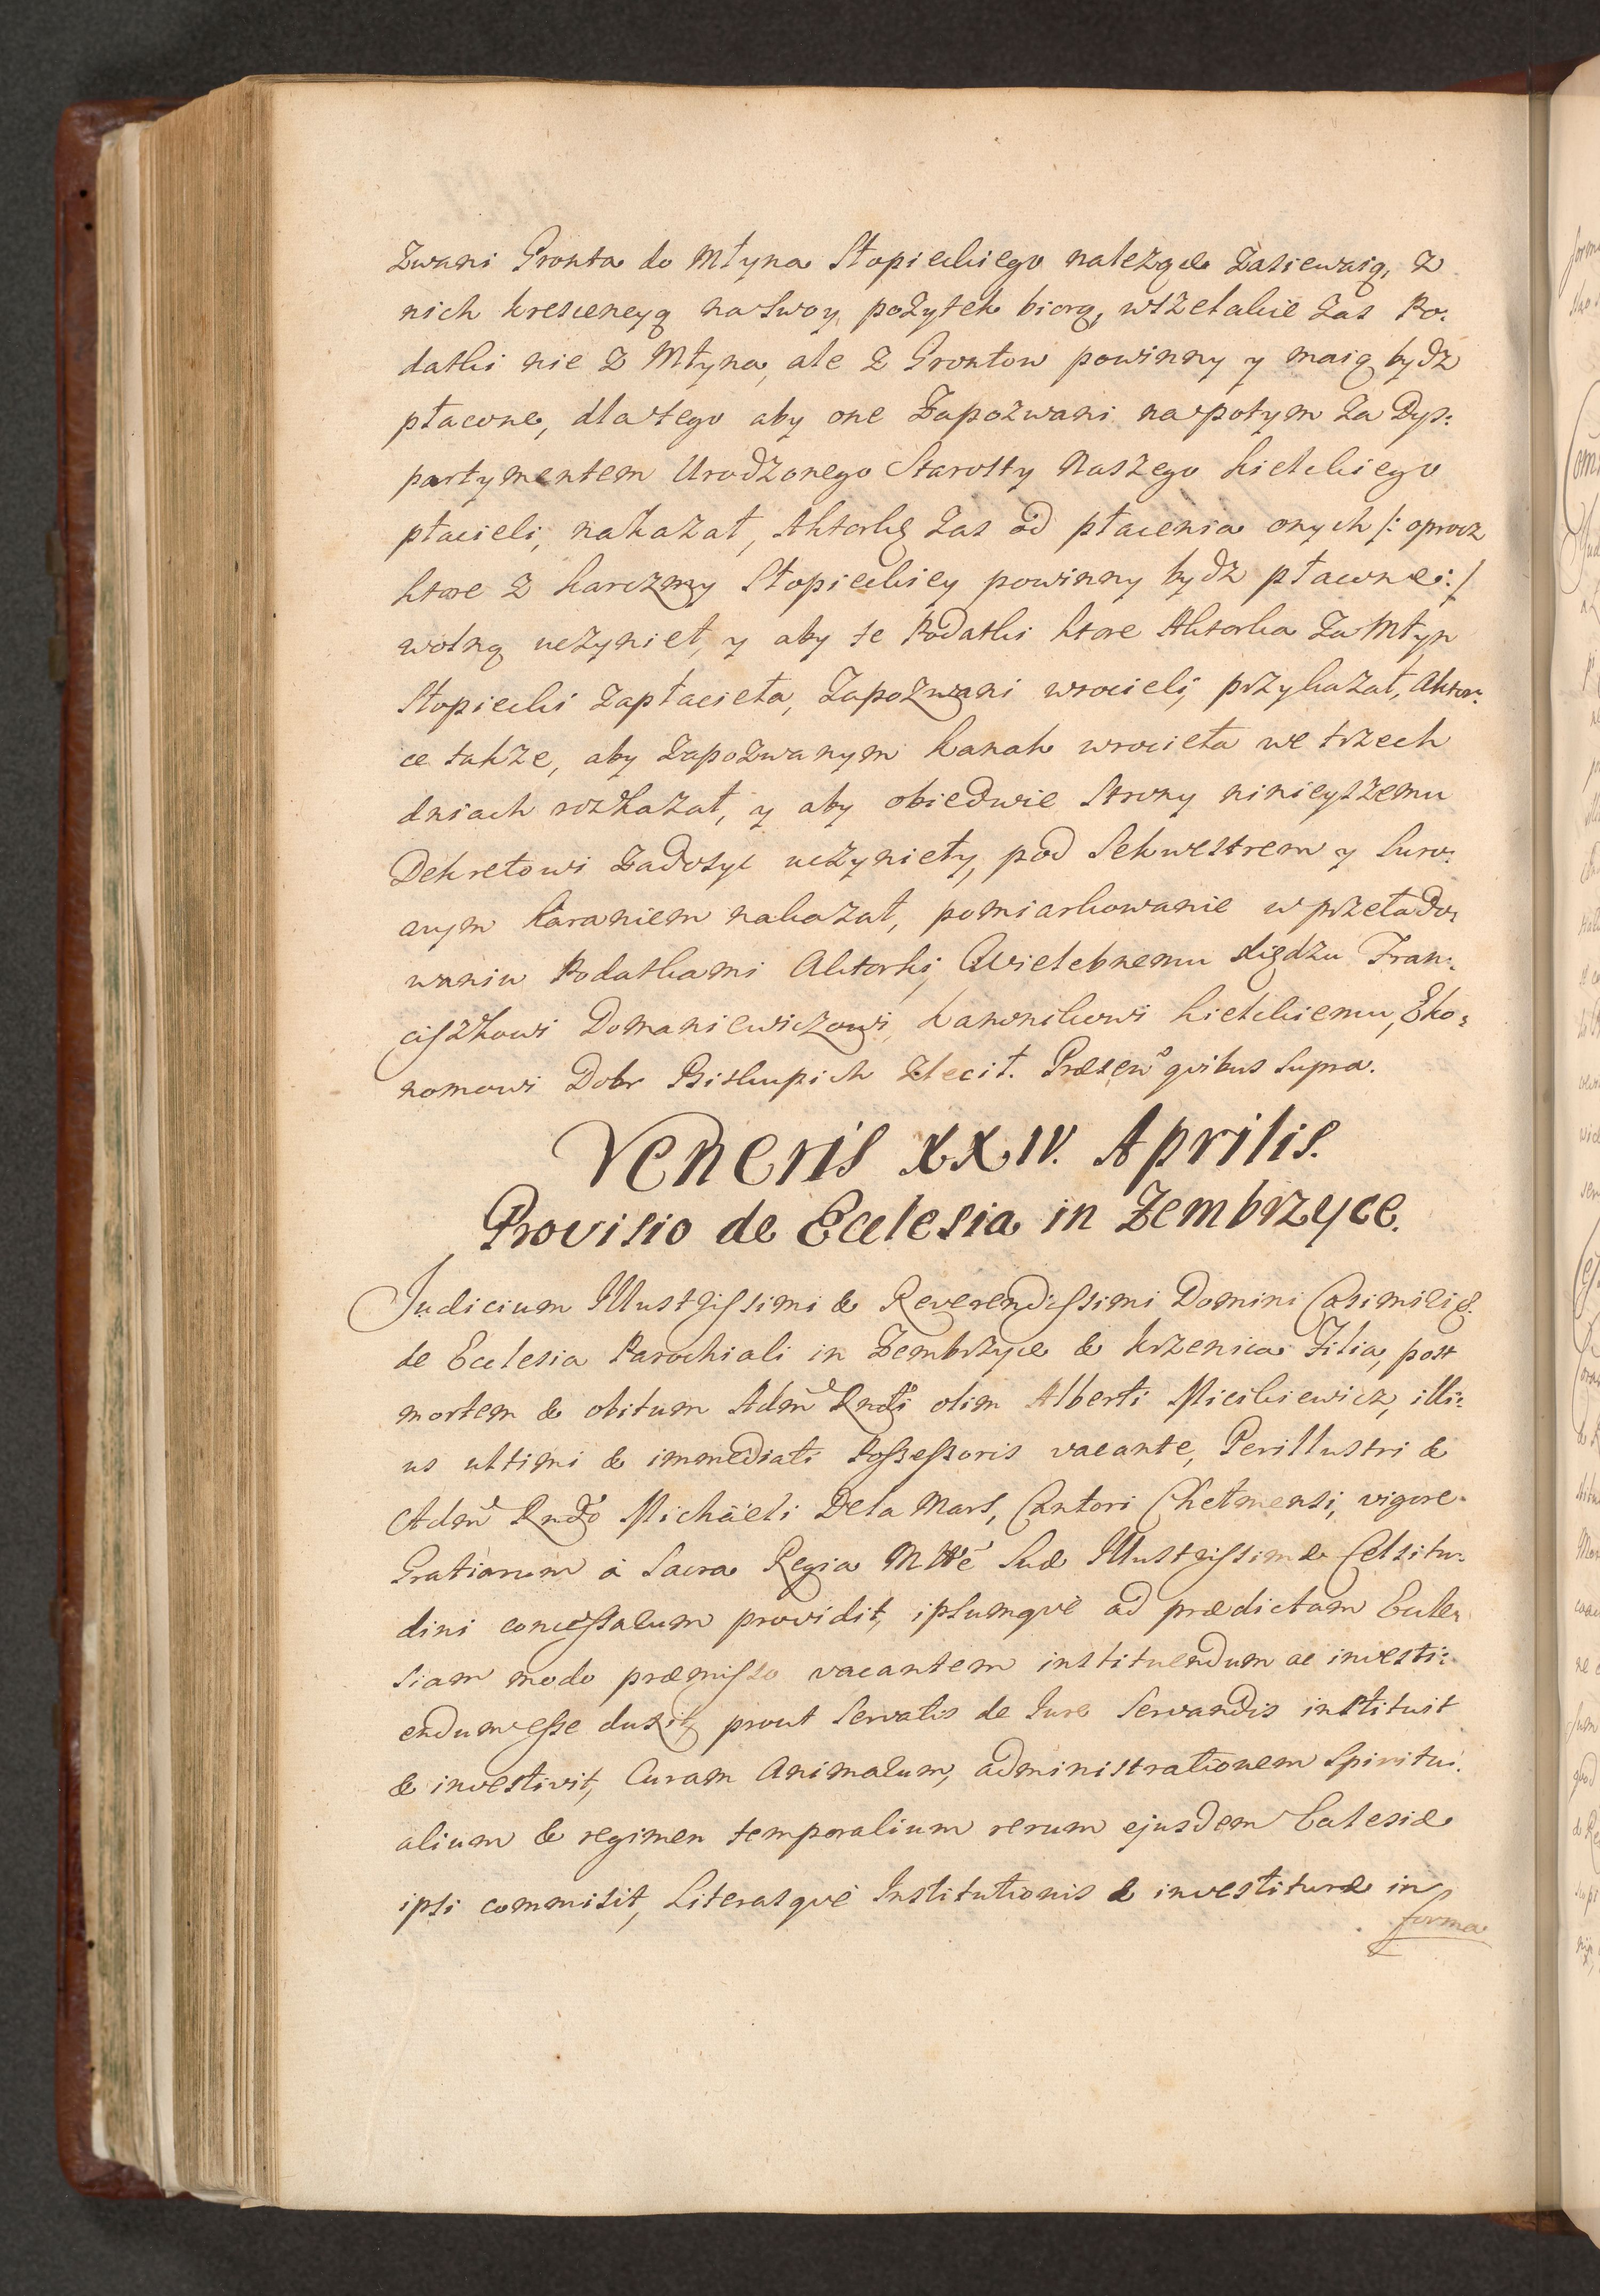 Zwani Gronta do Młyna Słopieckiego należące zasiewaią, z
nich krescencyą na swoy pożytek biorą, wszelakie zas Po:
datki nie z Młyna, ale z Grontow powinny y maią bydz
płacone, dla tego aby one Zapozwani na potym za Dys:
partymentem Urodzonego Starosty Naszego Kieleckiego
płacieli, nakazał, Aktorkę zas od płacenia onych /: oprocz
ktore z karczmy Słopieckiey powinny bydz płacone :/
wolną uczynieł, y aby te Podatki ktore Aktorka za Młyn
Słopiecki zapłacieła, Zapozwani wrocieli, przykazał, Aktor:
ce takze, aby zapozwanym Kanak wrocieła we trzech
dniach rozkazał, y aby obiedwie Strony ninieyszemu
Dekretowi zadosyc uczynieły, pod Sekwestrem y suro:
wym karaniem nakazał, pomiarkowanie w przełado:
waniu Podatkami Aktorki, Wielebnemu Xiędzu Fran:
ciszkowi Domaniewiczowi, Kanonikowi Kieleckiemu, Eko:
nomowi Dobr Biskupich zlecił. Præsen quibus supra.
Veneris XXIV. Aprilis.
Provisio de Ecclesia in Zembrzyce.
Judicium Illustrissimi & Reverendissimi Domini Casimiri &.
de Ecclesia Parochiali in Zembrzyce & Krzenica Filia, post
mortem & obitum Adm̃ Rndi olim Alberti Micikiewicz, illi:
us ultimi & immediati Possessoris vacante, Perillustri &
Adm̃ Rndo Michaëli Dela Mars, Cantori Chełmensi, vigore
Gratiarum à Sacra Regia Mtte Suæ Illustrissimæ Celsitu:
dini concessarum providit, ipsumque ad prædictam Eccle:
siam modo præmisso vacantem instituendum ac investi:
endum esse duxit, prout servatis de Jure servandis instituit
& investivit, Curam Animarum, administrationem Spiritu:
alium & regimen temporalium rerum ejusdem Ecclesiæ
ipsi commisit, Literasque Institutionis & investituræ in
forma